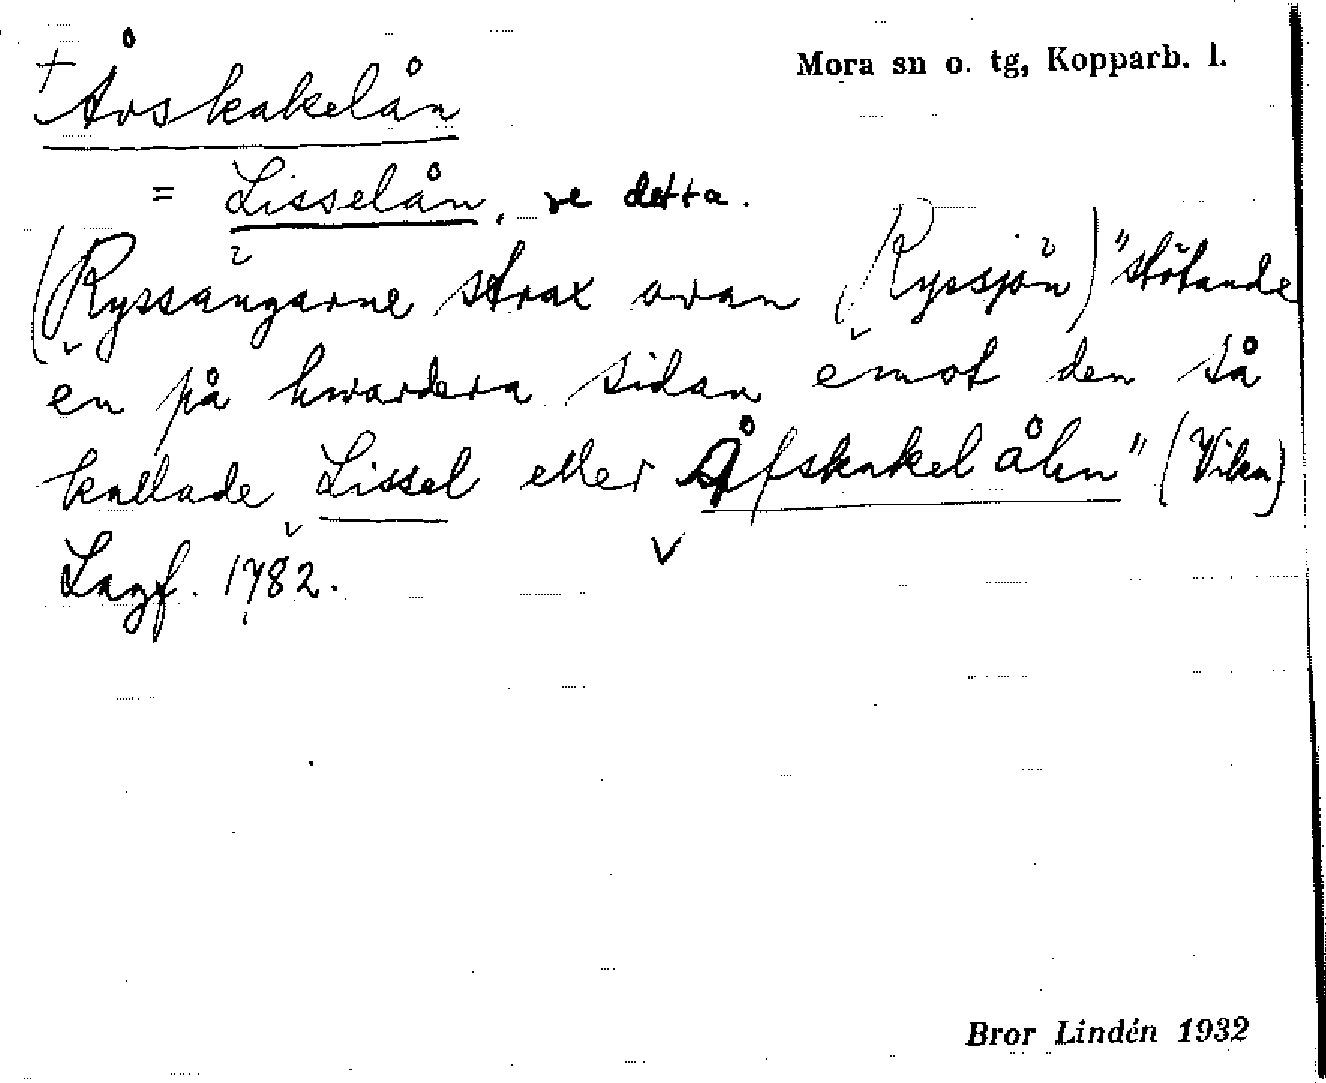 Mora sn o. tg, Kopparb. l.
+ Åvskakelån
= Lisselån, se detta.
(Ryssängarne strax ovan (Ryssjön) "stötande
en på hwardera sidan emot den så
kallade Lissel eller Åfskakel åhn" (Vika)
Lagf. 1782.
Bror Lindén 1932